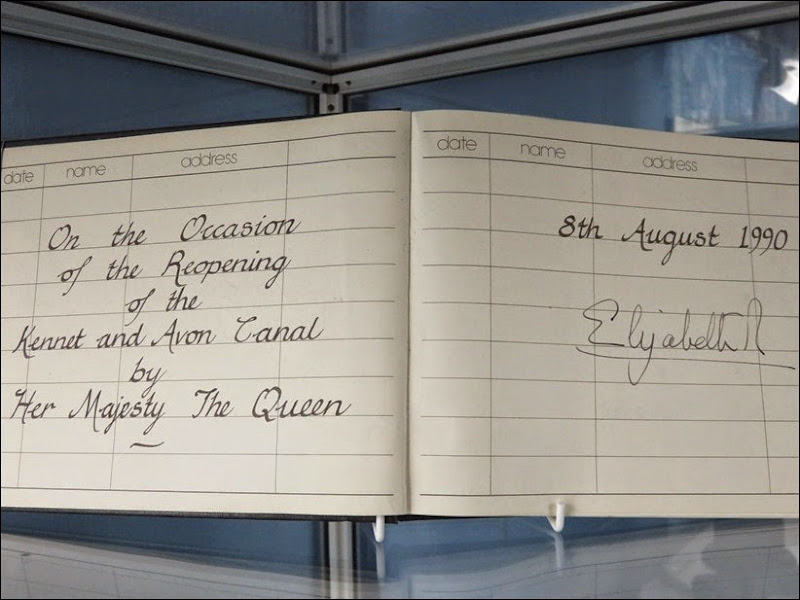 date name address
On the Occasion
of the Reopening
of the
Kennet and Avon Canal
by
Her Majesty The Queen
date name address
8th August 1990
Elizabeth R